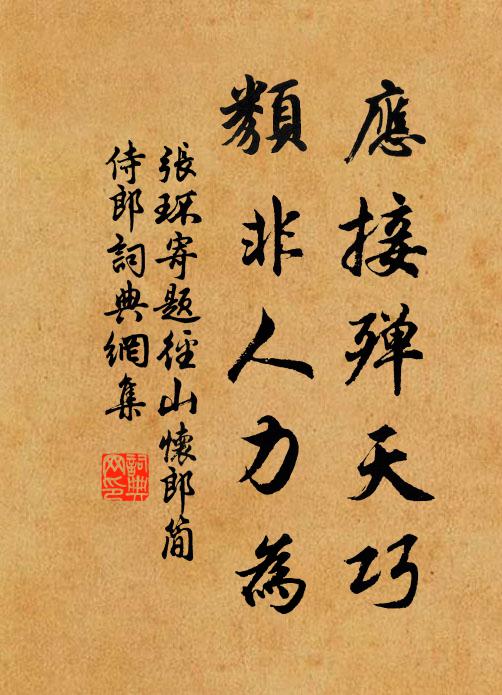 應接殫天巧
類非人力為
張瓌寄題徑山懷郎簡
侍郎詞典網集
詞典
网印